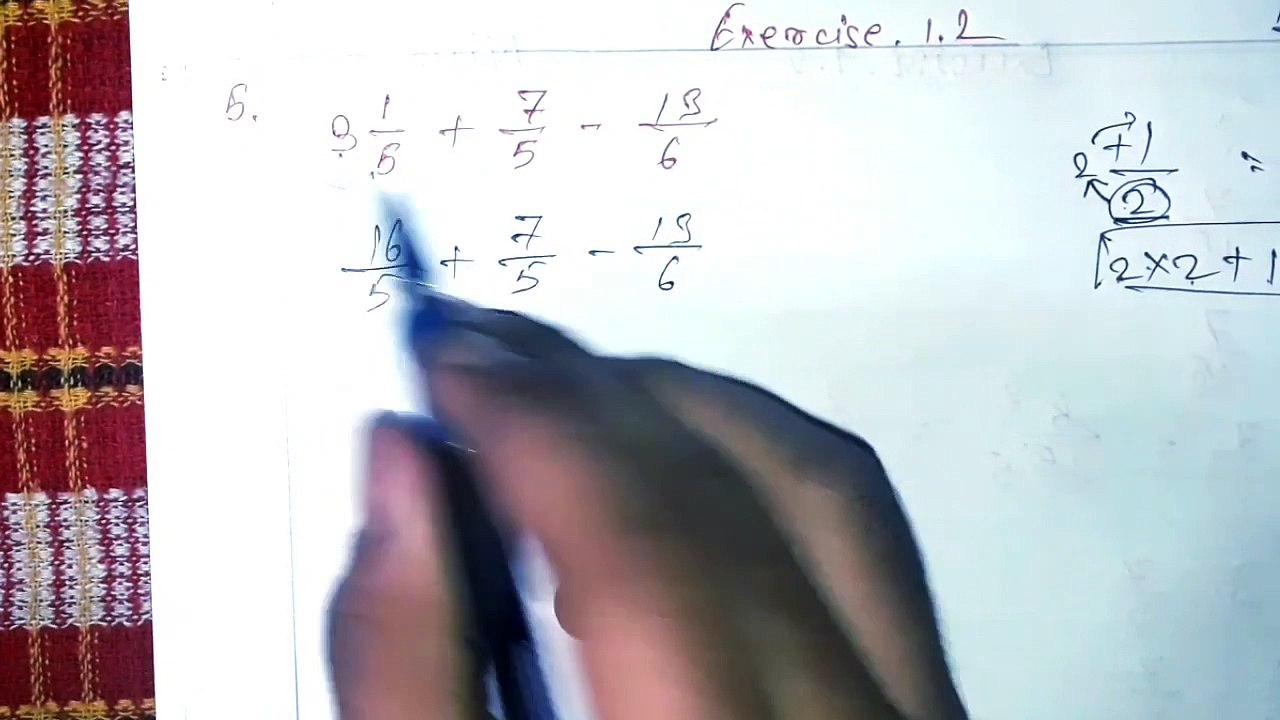 Exercise. 1.2
5. 3 1/5 + 7/5 - 13/6
16/5 + 7/5 - 13/6
2 +1/2 =
2×2+1